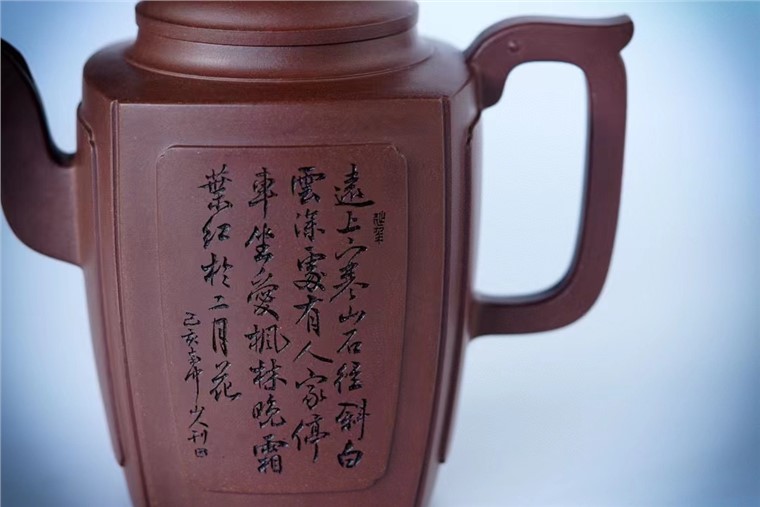 遠上寒山石径斜白
雲深處有人家停
車坐愛楓林晚霜
葉紅於二月花
己亥山人刊